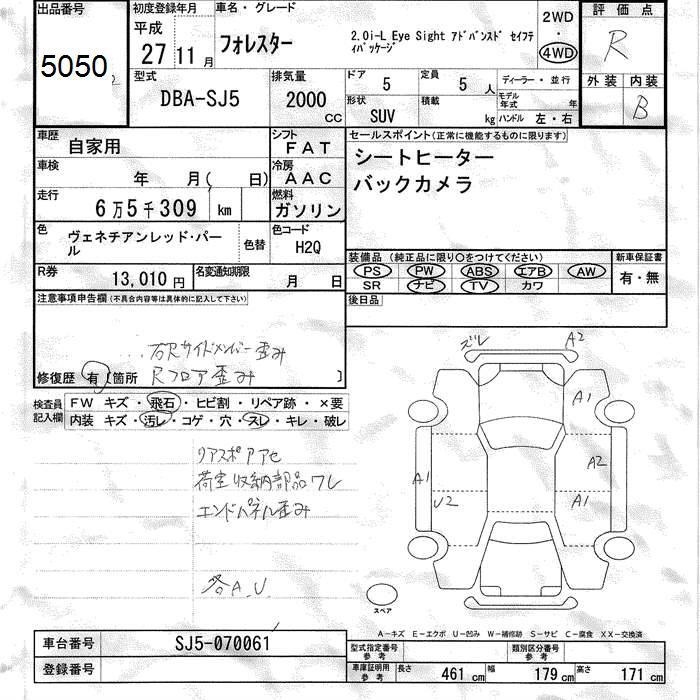 出品番号 初度登録年月 車名・グレード 評価点
5050 2 平成 27 11月 フォレスター 2.0i-L Eye Sight アドバンスド セイフティパッケージ 2WD・4WD R
型式 排気量 ドア 定員 ディーラー・並行 外装 内装
DBA-SJ5 2000 CC 5 5 人 モデル年式 年 B
形状 SUV 積載 kg ハンドル 左・右
車歴 自家用 シフト FAT セールスポイント(正常に機能するものに限ります)
車検 年 月( 日) 冷房 AAC シートヒーター
走行 6万5千309 km 燃料 ガソリン バックカメラ
色 ヴェネチアンレッド・パール 色替 色コード H2Q
装備品(純正品に限り○をつけてください) 新車保証書
R券 13,010円 名変通知期限 月 日 PS PW ABS エアB AW 有・無
SR ナビ TV カワ
注意事項申告欄(不具合内容等は具体的に記入して下さい) 後日品
サイドメンバー歪み
修復歴 有(箇所 Rフロア歪み ]
ズレ A2
検査員記入欄 FW キズ・飛石・ヒビ割・リペア跡・×要
内装 キズ・汚レ・コゲ・穴・スレ・キレ・破レ
A1
A2
A1 U2 A1
リアスポアアセ
荷室収納部品ワレ
エンドパネル歪み
各A.U
スペア
A-キズ E-エクボ U-凹み W-補修跡 S-サビ C-腐食 XX-交換済
車台番号 SJ5-070061 型式指定番号 参考 類別区分番号 参考
登録番号 車庫証明用 参考 長さ 461 cm 幅 179 cm 高さ 171 cm